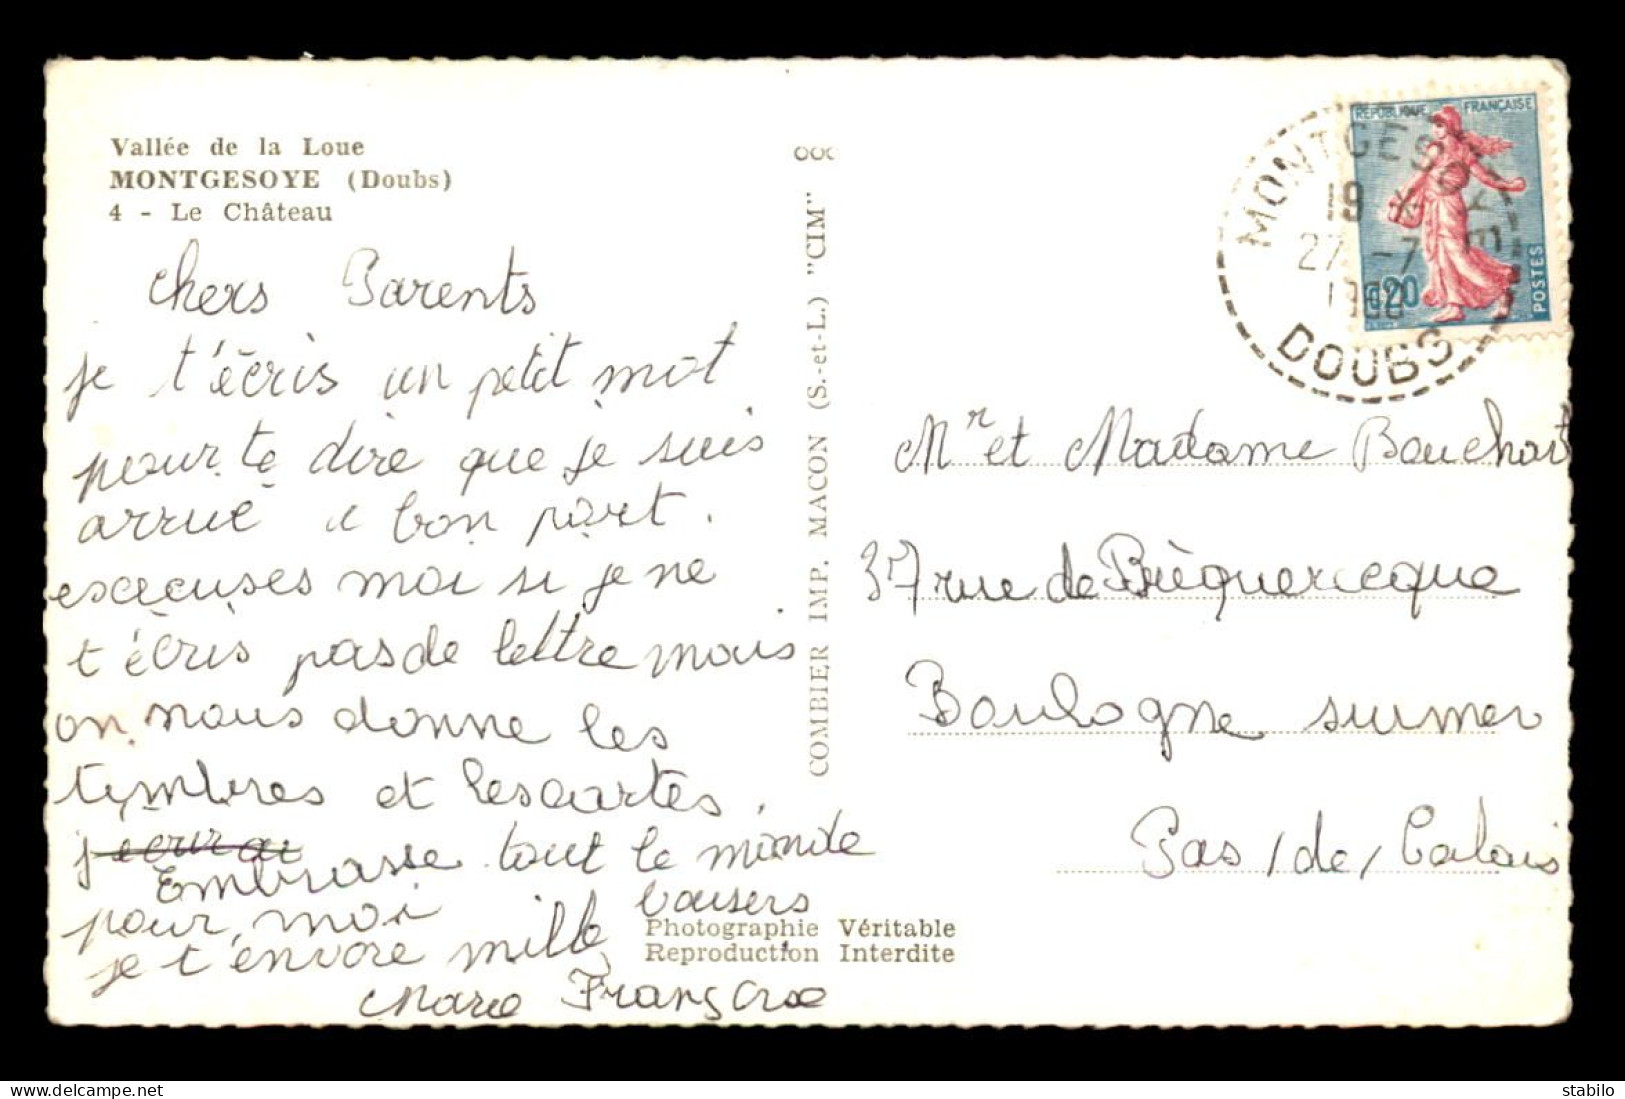 Vallée de la Loue
MONTGESOYE (Doubs)
4 - Le Château
chers Parents
je t'écris un petit mot
pour te dire que je suis
arrué a bon port.
excecuses moi si je ne
t'écris pas de lettre mais
on nous donne les
tymbres et les cartes.
Embrasse tout le monde
pour moi
je t'envoie mille baisers
Marie Françoise
COMBIER IMP. MACON (S.-et-L.) "CIM"
Photographie Véritable
Reproduction Interdite
REPUBLIQUE FRANÇAISE
0,20
POSTES
MONTGESOYE
19 H
27 -7
DOUBS
Mr et Madame Bouchart
37 rue de Bréquerecque
Boulogne sur mer
Pas / de / Calais
stabilo